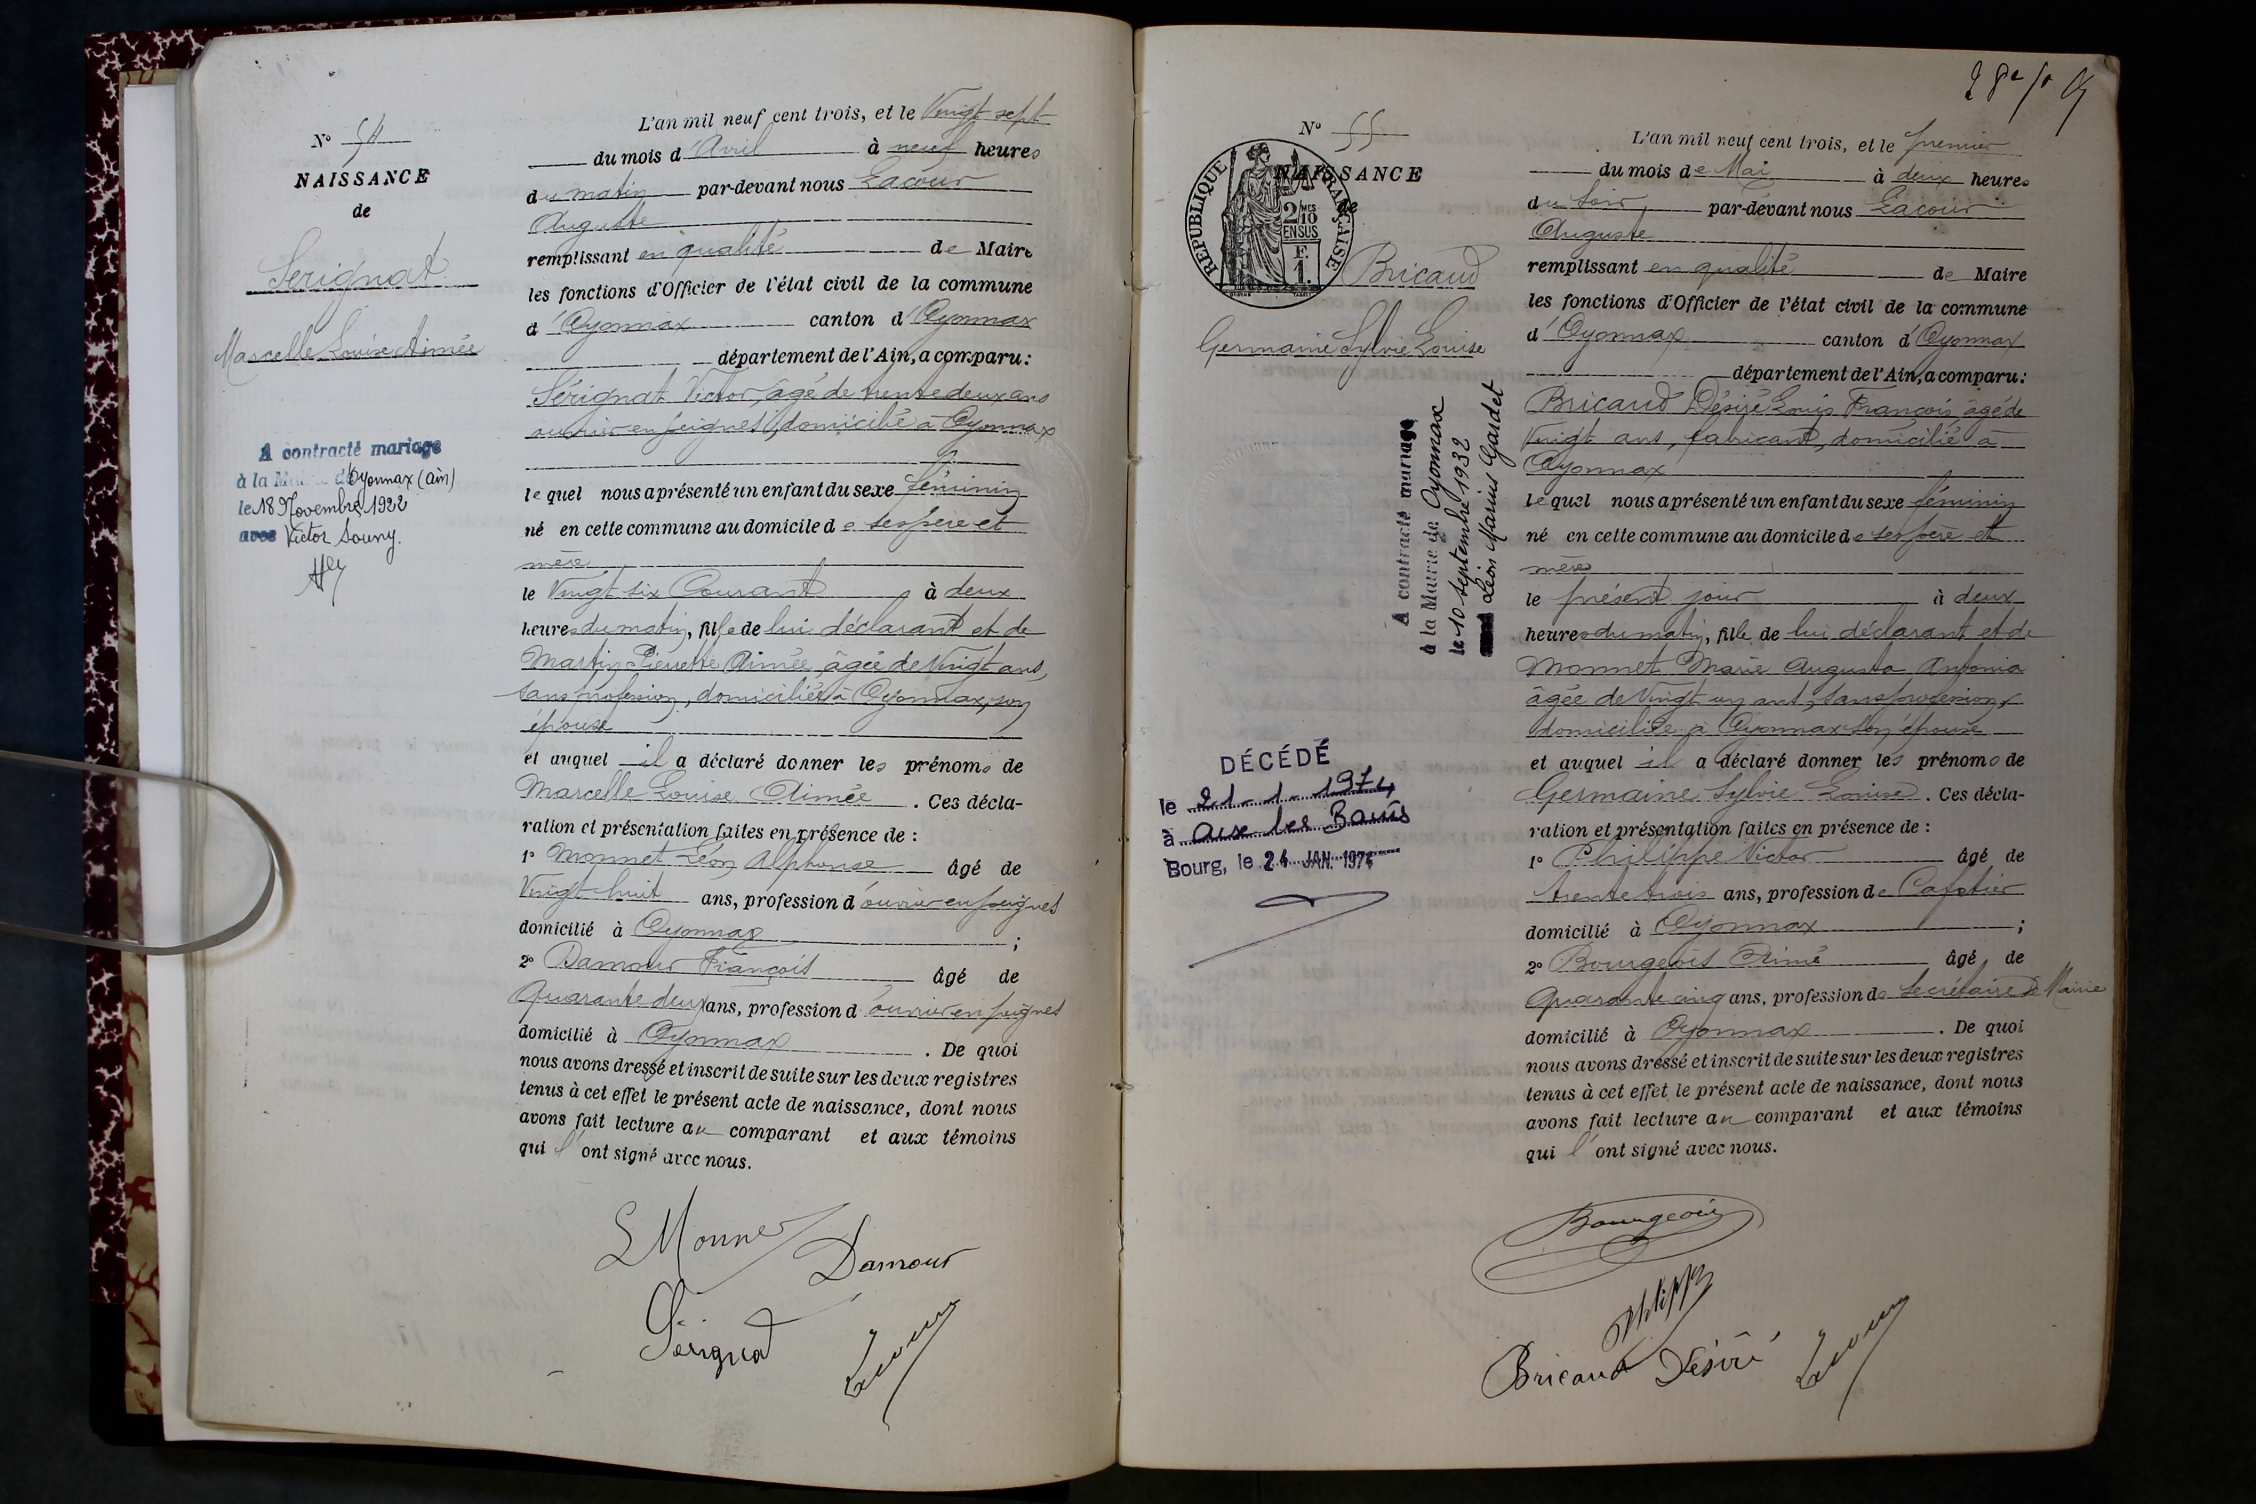 N° 54
NAISSANCE
de
Serignat
Marcelle Louise Aimée
A contracté mariage
à la Mairie d'Oyonnax (Ain)
le 18 Novembre 1922
avec Victor Souny.
L'an mil neuf cent trois, et le Vingt sept
du mois d'Avril à neuf heures
du matin par-devant nous Lacour
Auguste
remplissant en qualité de Maire
les fonctions d'Officier de l'état civil de la commune
d'Oyonnax canton d'Oyonnax
département de l'Ain, a comparu :
Sérignat Victor, âgé de trente deux ans
ouvrier en peignes, domicilié à Oyonnax
lequel nous a présenté un enfant du sexe féminin
né en cette commune au domicile de ses père et
mère
le Vingt six Courant à deux
heures du matin, fille de lui déclarant et de
Martin Pierrette Aimée, âgée de Vingt ans,
sans profession, domiciliée à Oyonnax, son
épouse
et auquel il a déclaré donner les prénoms de
Marcelle Louise Aimée. Ces décla-
ration et présentation faites en présence de :
1° Monnet Léon Alphonse âgé de
Vingt-huit ans, profession d'ouvrier en peignes
domicilié à Oyonnax ;
2° Damour François âgé de
Quarante deux ans, profession d'ouvrier en peignes
domicilié à Oyonnax. De quoi
nous avons dressé et inscrit de suite sur les deux registres
tenus à cet effet le présent acte de naissance, dont nous
avons fait lecture au comparant et aux témoins
qui l'ont signé avec nous.
L Monnet
Damour
Sérignat
Lacour
N° 55
NAISSANCE
de
REPUBLIQUE FRANÇAISE
2/10 MES
EN SUS
F.
1.
Bricaud
Germaine Sylvie Louise
A contracté mariage
à la Mairie de Oyonnax
le 10 septembre 1932
avec Léon Marius Gardet
DÉCÉDÉ
le 21-1-1974
à Aix les Bains
Bourg, le 24 JAN. 1974
L'an mil neuf cent trois, et le premier
du mois de Mai à deux heures
du soir par-devant nous Lacour
Auguste
remplissant en qualité de Maire
les fonctions d'Officier de l'état civil de la commune
d'Oyonnax canton d'Oyonnax
département de l'Ain, a comparu :
Bricaud Désiré Louis François âgé de
Vingt ans, fabricant, domicilié à
Oyonnax
lequel nous a présenté un enfant du sexe féminin
né en cette commune au domicile de ses père et
mère
le présent jour à deux
heures du matin, fille de lui déclarant et de
Monnet Marie Augusta Antonia
âgée de Vingt un ans, sans profession,
domiciliée à Oyonnax son épouse
et auquel il a déclaré donner les prénoms de
Germaine Sylvie Louise. Ces décla-
ration et présentation faites en présence de :
1° Philippe Victor âgé de
trente trois ans, profession de Cafetier
domicilié à Oyonnax ;
2° Bourgeois Aimé âgé de
Quarante cinq ans, profession de secrétaire de Mairie
domicilié à Oyonnax. De quoi
nous avons dressé et inscrit de suite sur les deux registres
tenus à cet effet le présent acte de naissance, dont nous
avons fait lecture au comparant et aux témoins
qui l'ont signé avec nous.
Bourgeois
Philippe
Bricaud Désiré
Lacour